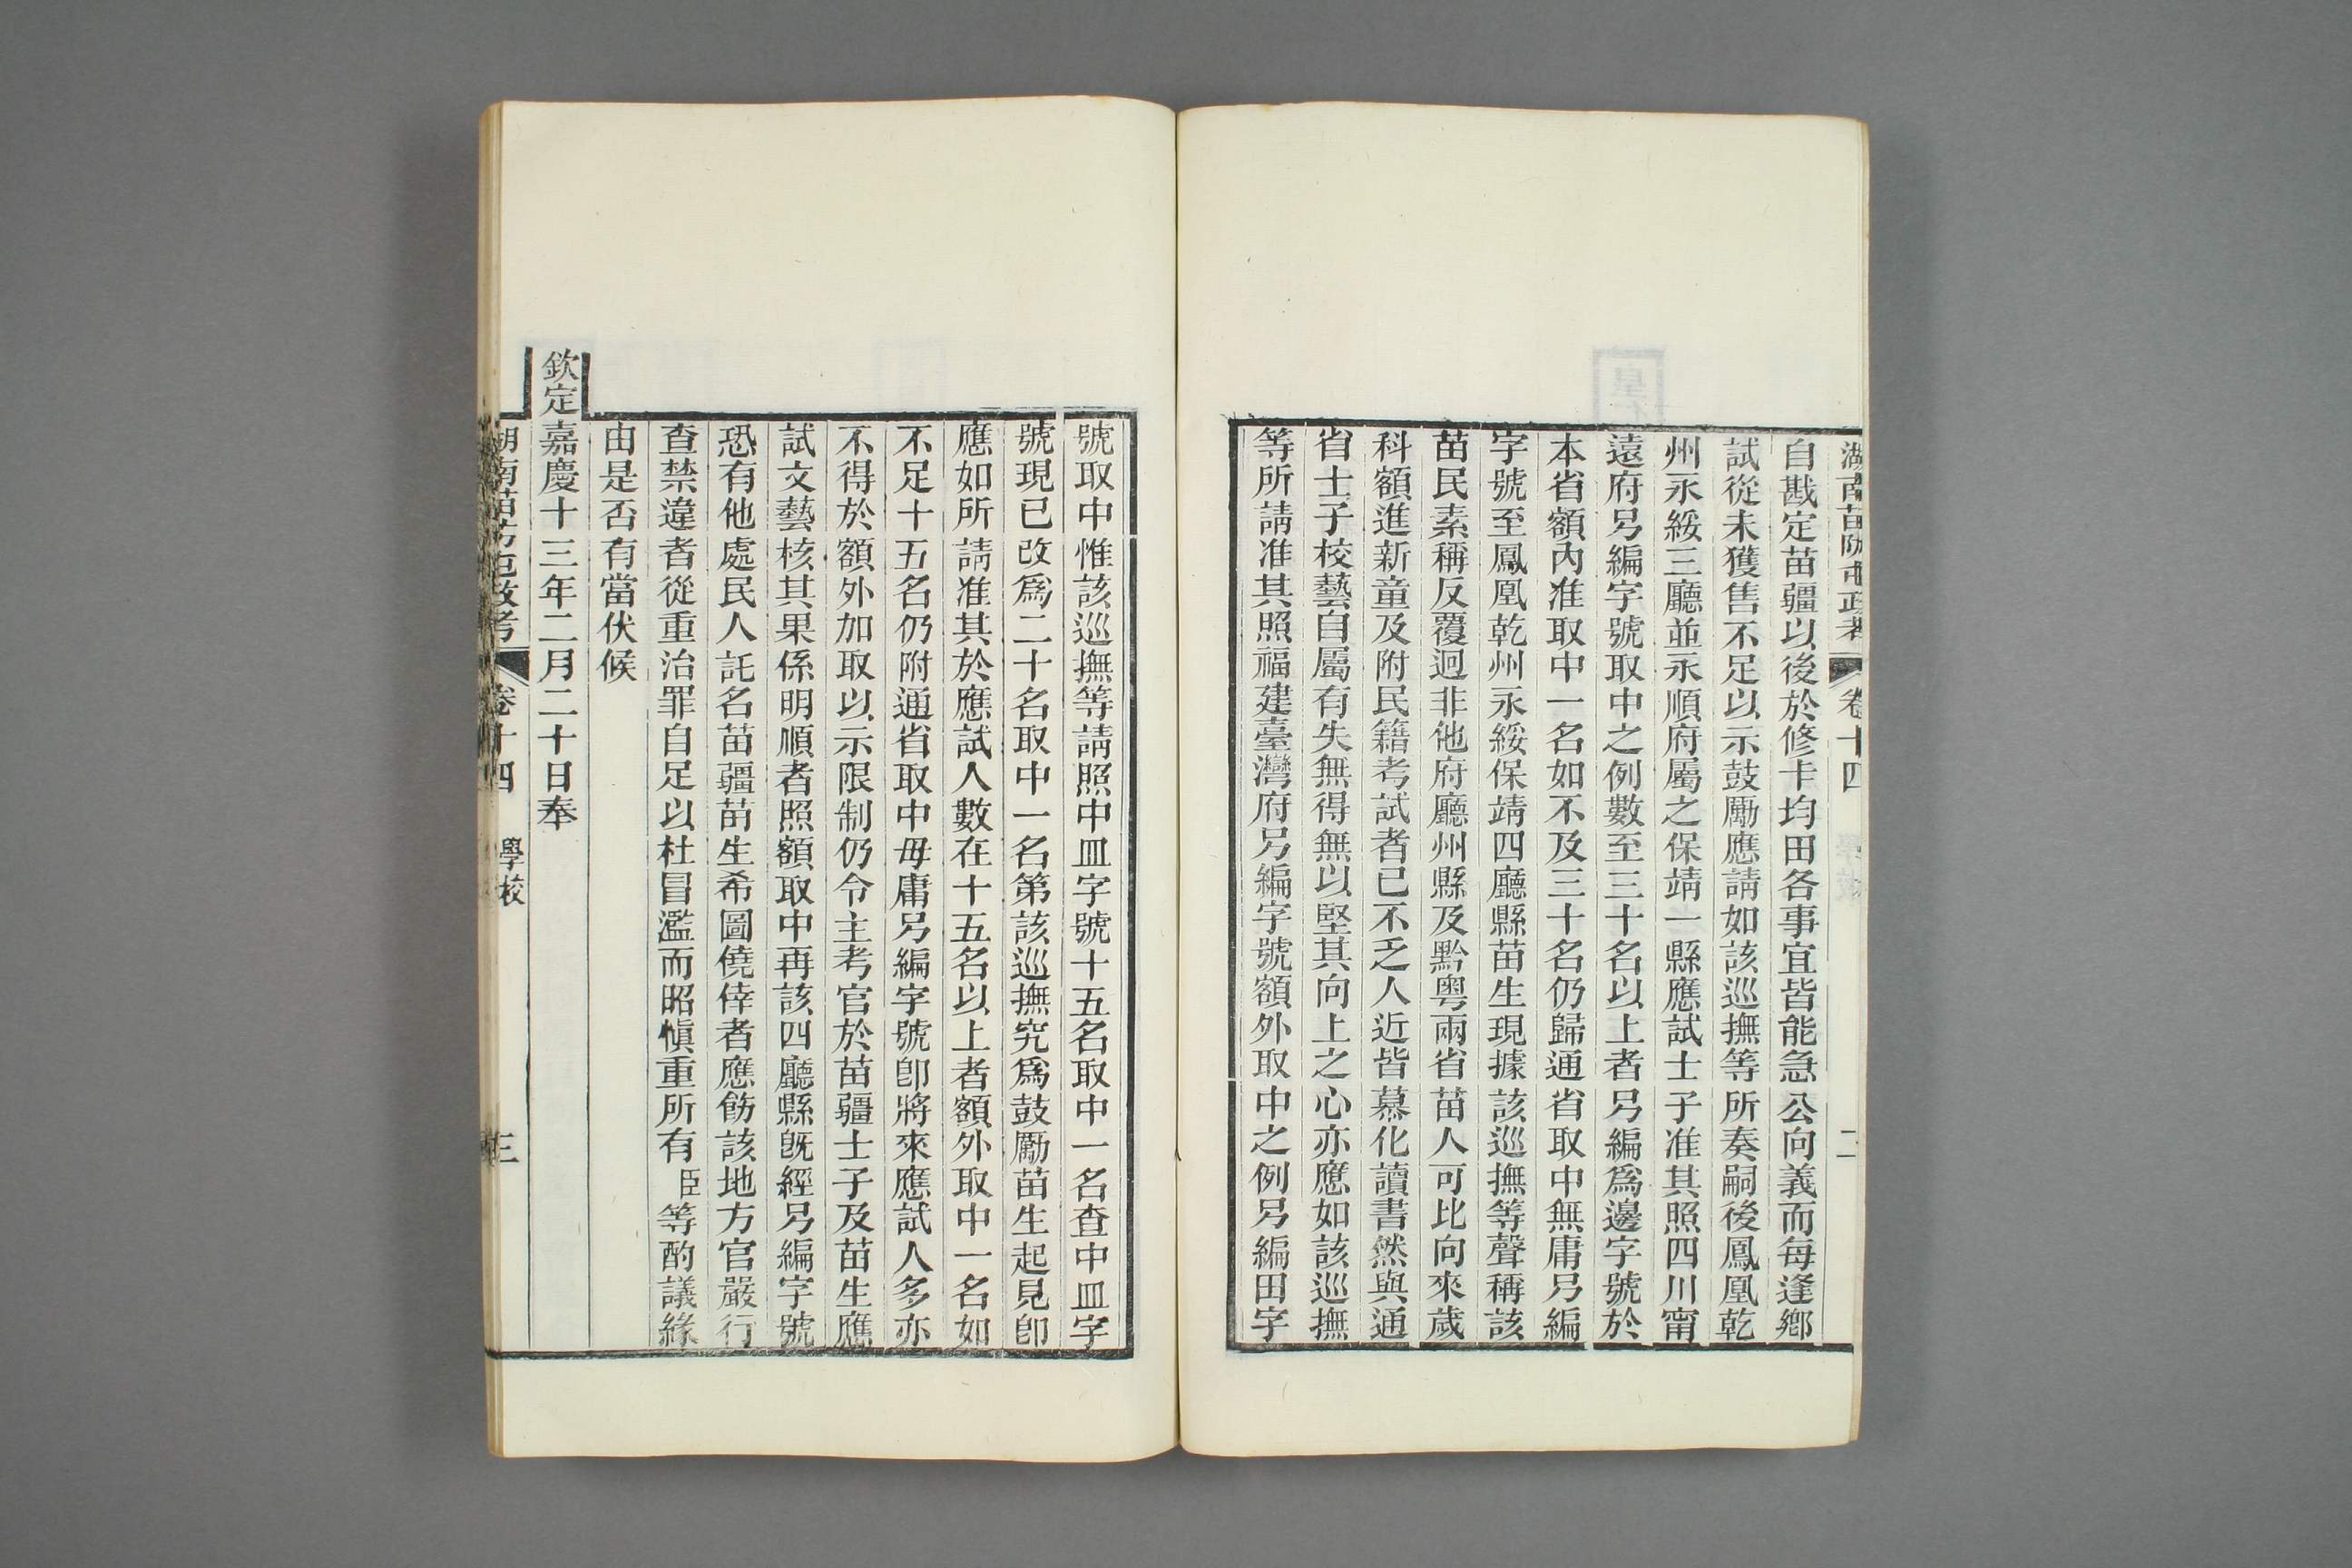 湖南苗防屯政考 卷十四 二
自戡定苗疆以後於修卡均田各事宜皆能急公向義而每逢鄉
試從未獲售不足以示鼓勵應請如該巡撫等所奏嗣後鳳凰乾
州永綏三廳並永順府屬之保靖一縣應試士子准其照四川甯
遠府另編字號取中之例數至三十名以上者另編爲邊字號於
本省額內准取中一名如不及三十名仍歸通省取中無庸另編
字號至鳳凰乾州永綏保靖四廳縣苗生現據該巡撫等聲稱該
苗民素稱反覆迥非他府廳州縣及黔粵兩省苗人可比向來歲
科額進新童及附民籍考試者已不乏人近皆慕化讀書然與通
省士子校藝自屬有失無得無以堅其向上之心亦應如該巡撫
等所請准其照福建臺灣府另編字號額外取中之例另編田字
號取中惟該巡撫等請照中皿字號十五名取中一名查中皿字
號現已改爲二十名取中一名第該巡撫究爲鼓勵苗生起見卽
應如所請准其於應試人數在十五名以上者額外取中一名如
不足十五名仍附通省取中毋庸另編字號卽將來應試人多亦
不得於額外加取以示限制仍令主考官於苗疆士子及苗生應
試文藝核其果係明順者照額取中再該四廳縣旣經另編字號
恐有他處民人託名苗疆苗生希圖僥倖者應飭該地方官嚴行
查禁違者從重治罪自足以杜冒濫而昭愼重所有臣等酌議緣
由是否有當伏候
欽定嘉慶十三年二月二十日奉
湖南苗防屯政考 卷十四 學校 三